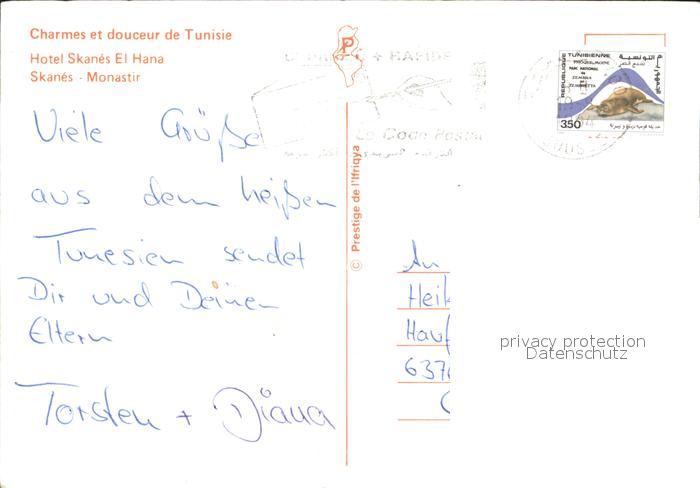 Charmes et douceur de Tunisie
Hotel Skanés El Hana
Skanés - Monastir
Viele Grüße
aus dem heißen
Tunesien sendet
Dir und Deinen
Eltern
Torsten + Diana
© Prestige de l'Ifriqya
P
+ RAPIDE
Le Code Postal
REPUBLIQUE TUNISIENNE
PARC NATIONAL
ZEMBRA
ZEMBRETTA
350
An
Heik
Hauf
637
privacy protection
Datenschutz